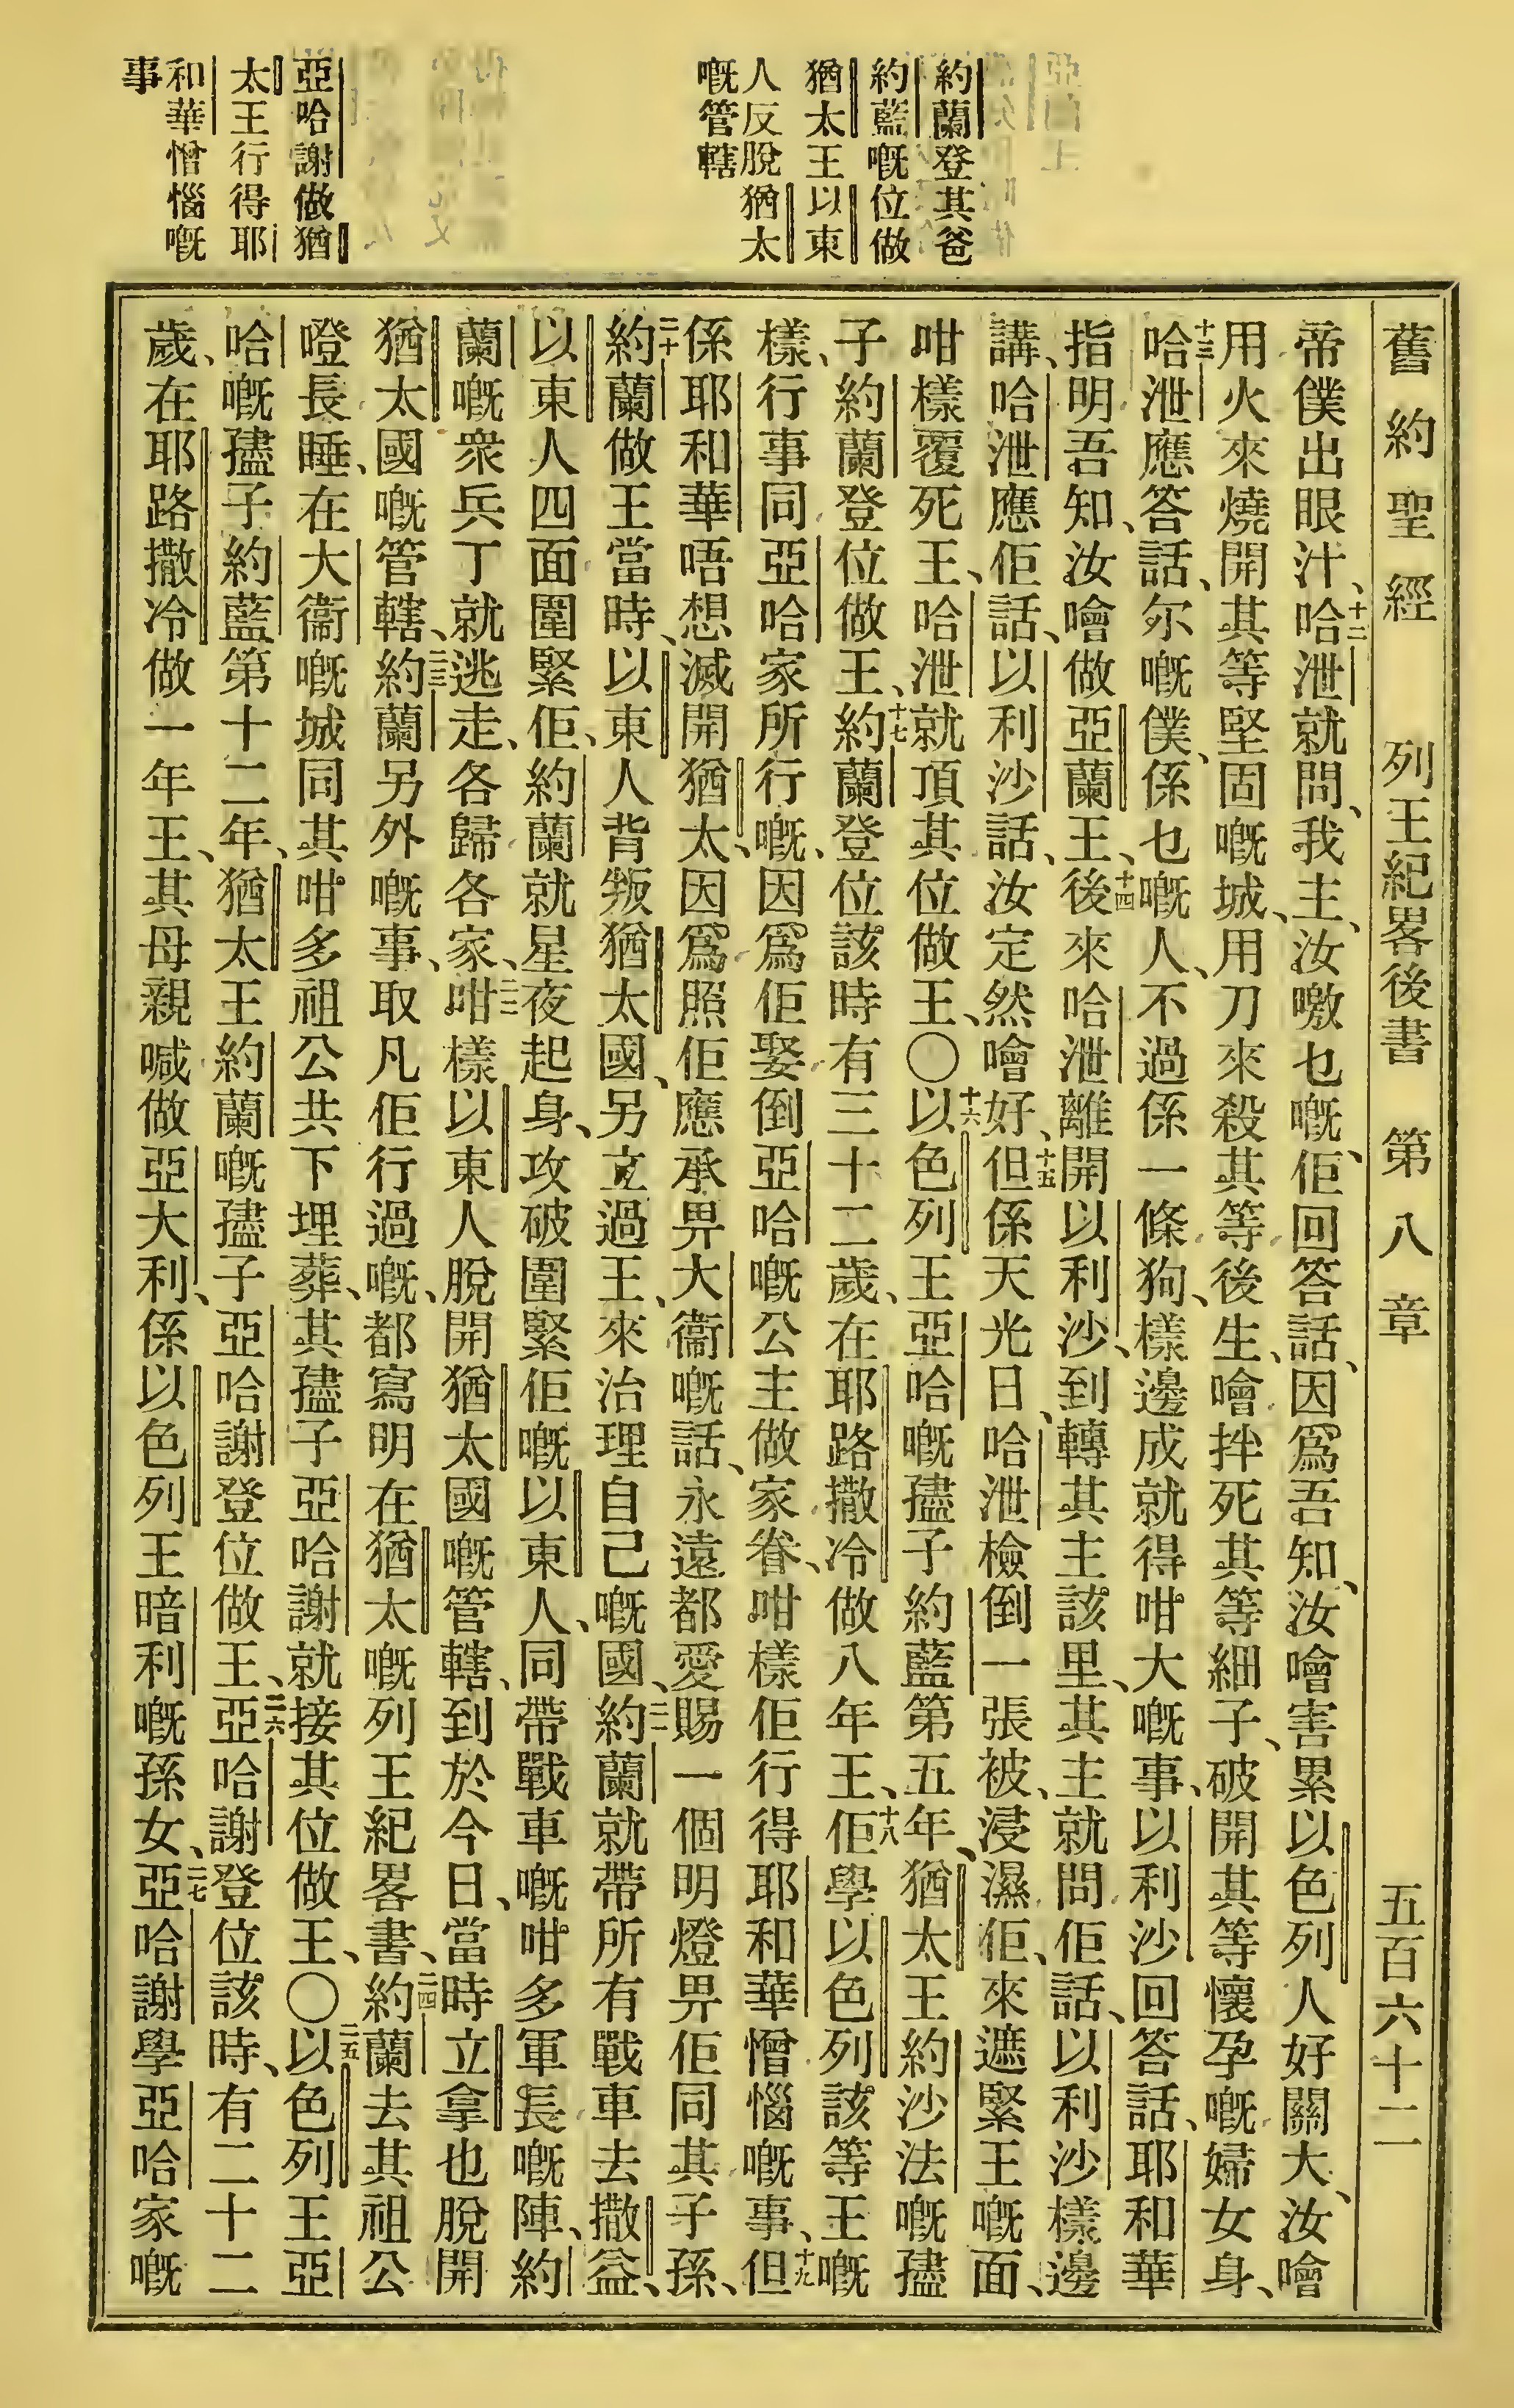 舊約聖經　列王紀畧後書　第八章　五百六十二
約蘭登其爸
約藍嘅位做
猶太王以東
人反脫猶太
嘅管轄
亞哈謝做猶
太王行得耶
和華憎惱嘅
事
帝僕出眼汁、十二哈泄就問、我主、汝噭乜嘅、佢回答話、因爲吾知、汝噲害累以色列人好關大、汝噲
用火來燒開其等堅固嘅城、用刀來殺其等後生、噲拌死其等細子、破開其等懷孕嘅婦女身、
十三哈泄應答話、尔嘅僕、係乜嘅人、不過係一條狗、樣邊成就得咁大嘅事、以利沙回答話、耶和華
指明吾知、汝噲做亞蘭王、十四後來哈泄離開以利沙、到轉其主該里、其主就問佢話、以利沙樣邊
講、哈泄應佢話、以利沙話、汝定然噲好、十五但係天光日、哈泄檢倒一張被、浸濕佢、來遮緊王嘅面、
咁樣覆死王、哈泄就頂其位做王、〇十六以色列王亞哈嘅孻子約藍第五年、猶太王約沙法嘅孻
子約蘭登位做王、十七約蘭登位該時有三十二歲、在耶路撒冷做八年王、十八佢學以色列該等王嘅
樣、行事同亞哈家所行嘅、因爲佢娶倒亞哈嘅公主做家眷、咁樣佢行得耶和華憎惱嘅事、十九但
係耶和華唔想滅開猶太、因爲照佢應承畀大衞嘅話、永遠都愛賜一個明燈畀佢同其子孫、
二十約蘭做王當時、以東人背叛猶太國、另立過王、來治理自己嘅國、二一約蘭就帶所有戰車去撒益、
以東人四面圍緊佢、約蘭就星夜起身、攻破圍緊佢嘅以東人、同帶戰車嘅咁多軍長嘅陣、約
蘭嘅衆兵丁就逃走、各歸各家、二二咁樣以東人脫開猶太國嘅管轄、到於今日、當時立拿也脫開
猶太國嘅管轄、二三約蘭另外嘅事、取凡佢行過嘅、都寫明在猶太嘅列王紀畧書、二四約蘭去其祖公
噔長睡、在大衞嘅城同其咁多祖公共下埋葬、其孻子亞哈謝就接其位做王、〇二五以色列王亞
哈嘅孻子約藍第十二年、猶太王約蘭嘅孻子亞哈謝登位做王、二六亞哈謝登位該時、有二十二
歲、在耶路撒冷做一年王、其母親喊做亞大利、係以色列王暗利嘅孫女、二七亞哈謝學亞哈家嘅